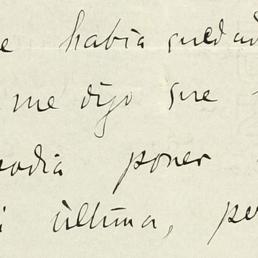 e había quedad
me digo que
podia poner
i última, pe